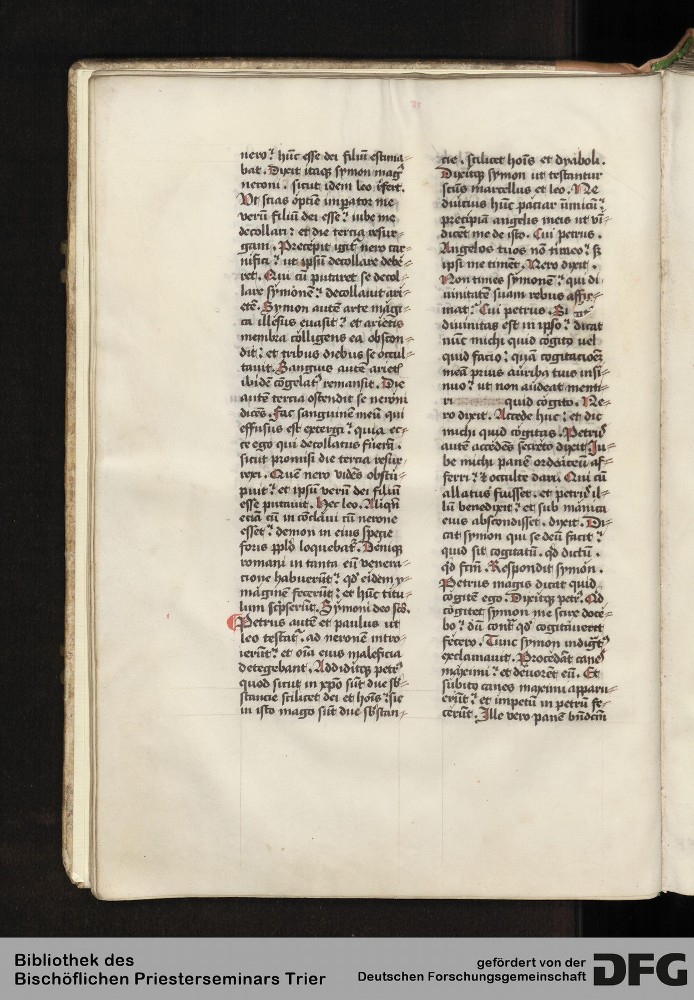 nero ⁊ hūc esse dei filiū estima-
bat. Dixit itaqȝ symon mago
neroni. sicut idem leo ꝯfert.
Ut scias optīe imperator me
verū filiū dei esse: iube me
decollari: et die tercia resur-
gam. Precepit igit̄ nero car-
nifici: ut ipsū decollare debe-
ret. Qui cū putaret se decol-
lare symonē: decollauit ari-
etē. Symon autē arte magi-
ca illesus euasit: et arietis
membra colligens ea abscon-
dit: et tribus diebus se occul-
tauit. Sanguis autē ariet̄
ibidē cōgelat᷒ remansit. Die
autē tercia ostendit se neroni
dicēs. Fac sanguinem meū qui
effusus est extergi: quia ec-
ce ego qui decollatus fuerā.
sicut promisi die tercia resur-
rexi. Quē nero vidēs obstu-
puit: et ipsū verū dei filiū
esse putauit. Hec leo. Aliqn̄
etiā cū in cōclaui cū nerone
esset: demon in eius specie
foris pplō loquebat᷒. Deniqȝ
romani in tanta eū venera-
cione habuerūt: qd̓ eidem y-
maginē fecerūt: et hūc titu-
lum scp̄serūt. Symoni deo scō.
Petrus autē et paulus ut
leo testat᷒. ad neronem intro-
ierūt: et oīa eius maleficia
detegebant. Addiditqȝ petr᷒
quod sicut in xpō sūt due sb̄-
stancie scilicet dei et hoīs: sic
in isto mago sūt due sb̄stan-
cie. scilicet hoīs et dyaboli.
Dixitqȝ symon ut testantur
scūs marcellus et leo. Ne
diucius hūc paciar inimicū:
precipiā angelis meis ut vī-
dicēt me de isto. Cui petrus.
Angelos tuos nō timeo: sȝ
ipsi me timēt. Nero dixit.
Non times symonē: qui di-
uinitatē suam rebus affir-
mat: Cui petrus. Si
diuinitas est in ipso: dicat
nūc michi quid cogito uel
quid facio: quā cogitacioēȝ
meā prius auribȝ tuis insi-
nuo: ut non audeat menti-
ri quid cogito. Ne-
ro dixit. Accede huc: et dic
michi quid cogitas. Petrus
autē accedēs secreto dixit. Iu-
be michi panē ordeiceū af-
ferri: & occulte dari. Qui cū
allatus fuisset. et petrus il-
lū benedixit: et sub manica
eius abscondisset. dixit. Di-
cat symon qui se deū facit:
quid sit cogitatū. qd̓ dictū.
qd̓ fcm̄. Respondit symon.
Petrus magis dicat quid
cogitē ego. Dixitqȝ petr᷒. Qd̓
cogitet symon me scire doce-
bo: dū contra qd̓ cogitauerit
fecero. Tunc symon indigt᷒
exclamauit. Procedāt canes
maximi: et deuorēt eū. Et
subito canes maximi apparu-
erūt: et impetū in petrū fe-
cerūt. Ille vero panē bn̄dcm̄
Bibliothek des
Bischöflichen Priesterseminars Trier
gefördert von der
Deutschen Forschungsgemeinschaft
DFG